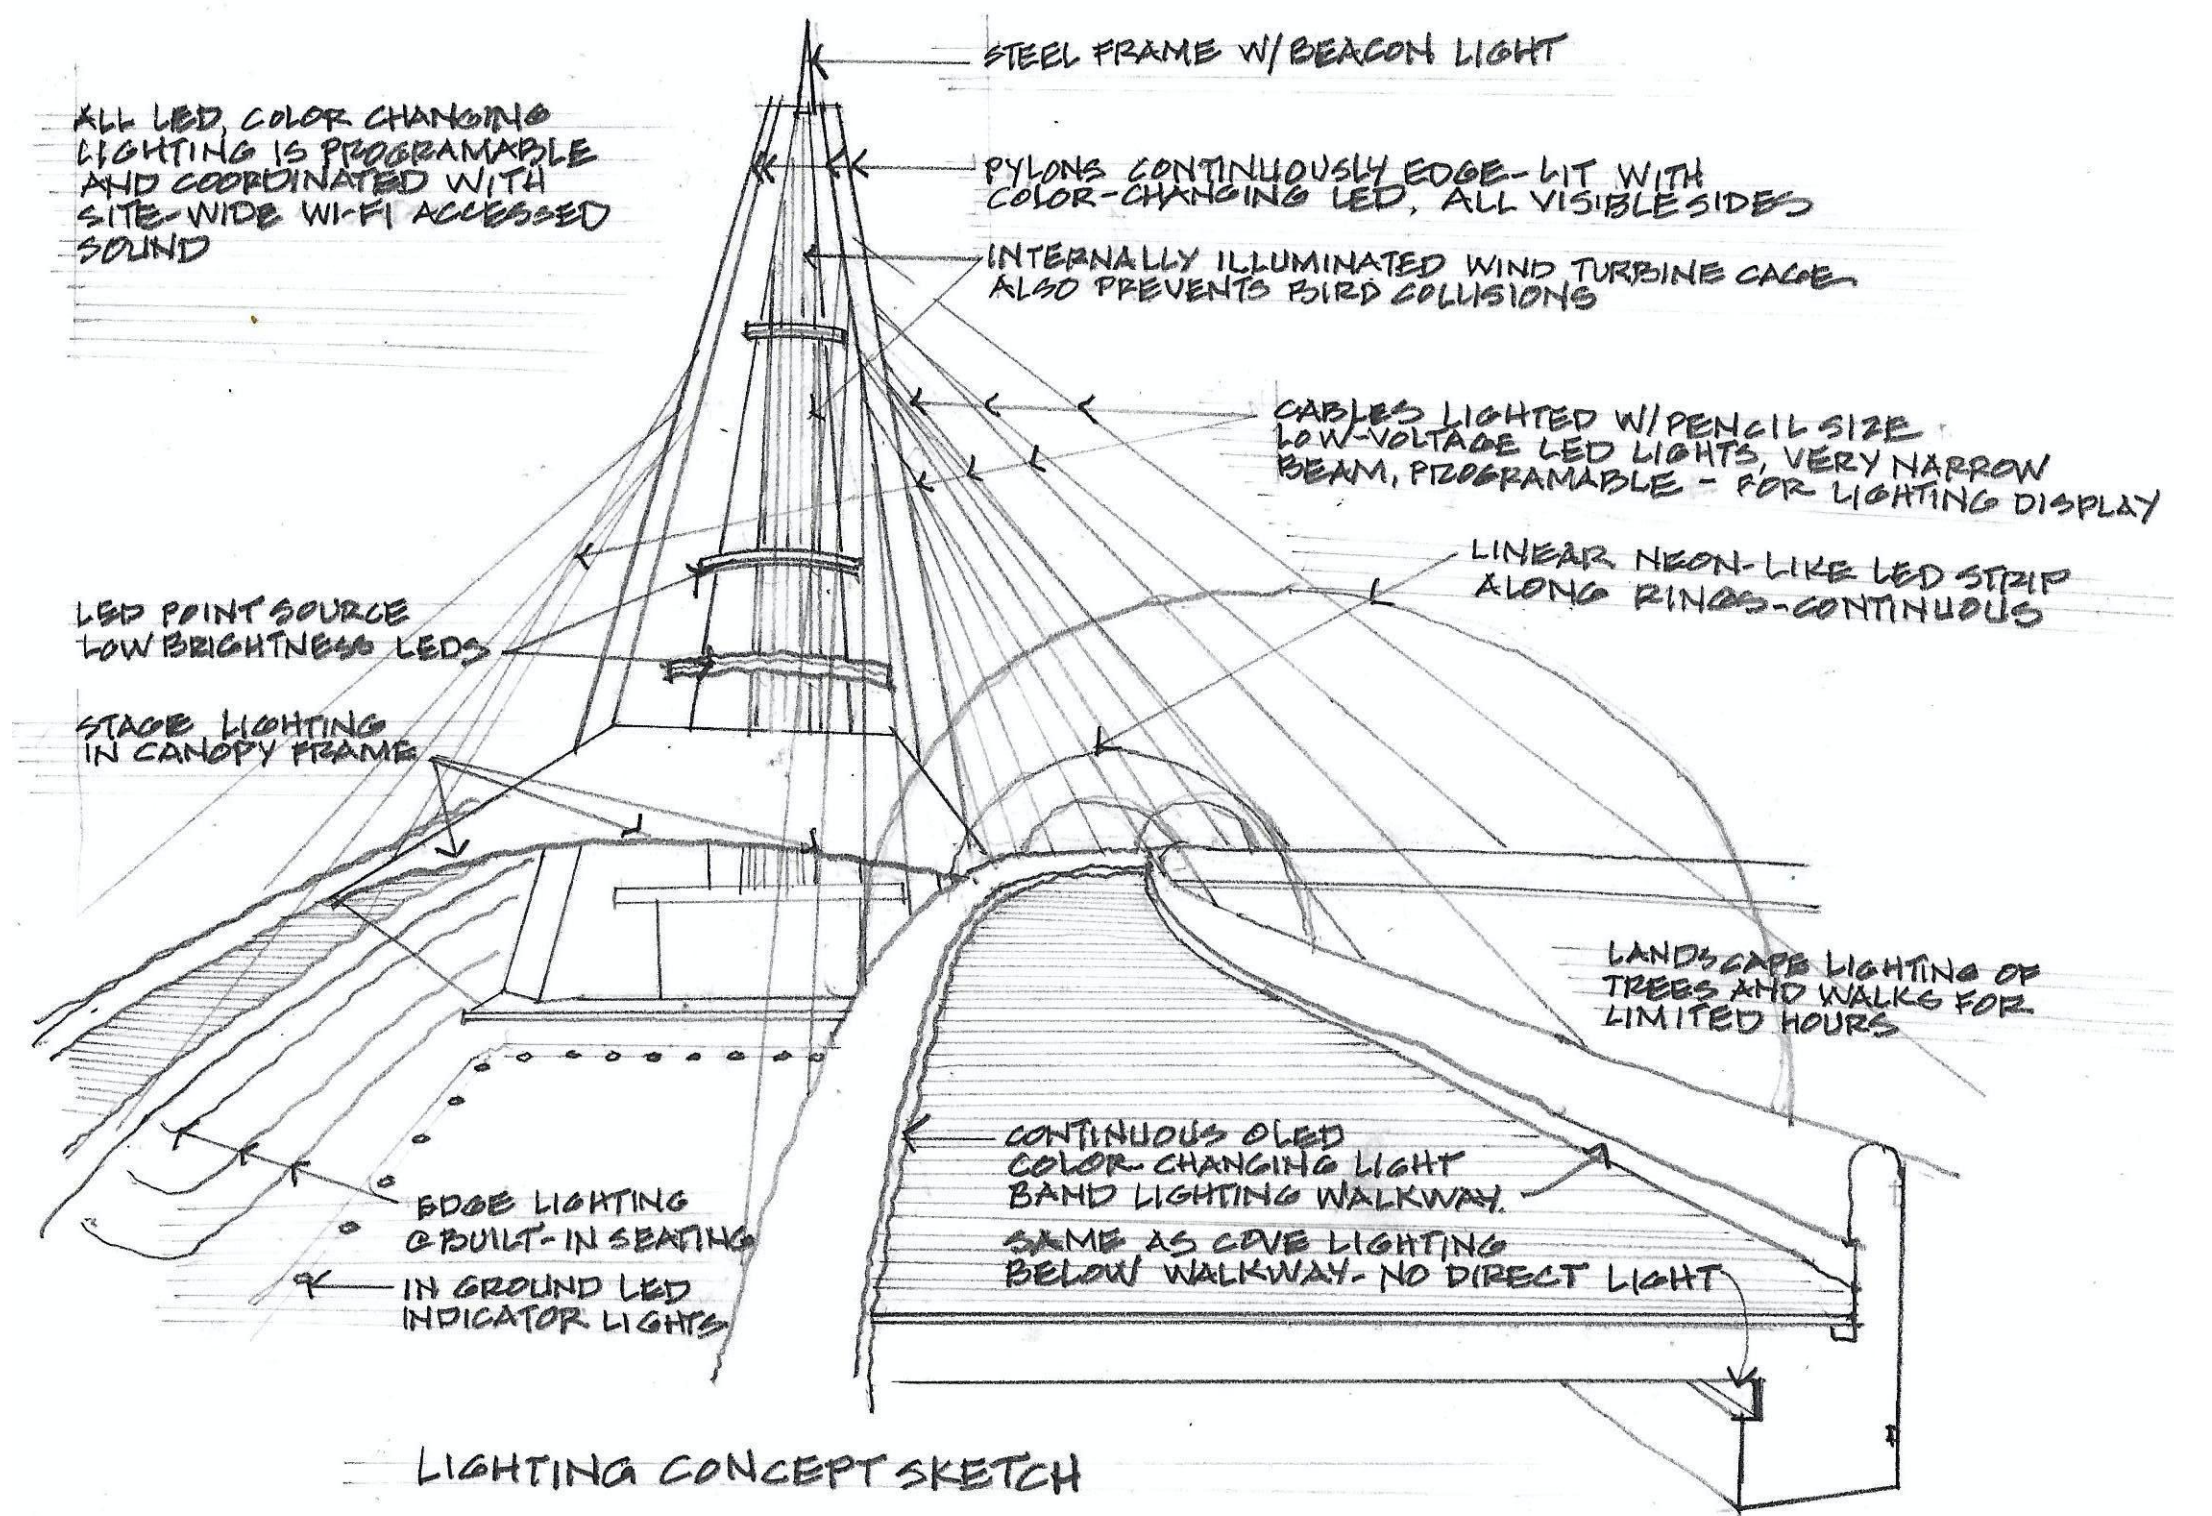 STEEL FRAME W/BEACON LIGHT
ALL LED, COLOR CHANGING
LIGHTING IS PROGRAMABLE
AND COORDINATED WITH
SITE-WIDE WI-FI ACCESSED
SOUND
PYLONS CONTINUOUSLY EDGE-LIT WITH
COLOR-CHANGING LED, ALL VISIBLE SIDES
INTERNALLY ILLUMINATED WIND TURBINE CAGE
ALSO PREVENTS BIRD COLLISIONS
CABLES LIGHTED W/PENCIL SIZE
LOW-VOLTAGE LED LIGHTS, VERY NARROW
BEAM, PROGRAMABLE - FOR LIGHTING DISPLAY
LINEAR NEON-LIKE LED STRIP
ALONG RINGS-CONTINUOUS
LED POINT SOURCE
LOW BRIGHTNESS LEDS
STAGE LIGHTING
IN CANOPY FRAME
LANDSCAPE LIGHTING OF
TREES AND WALKS FOR
LIMITED HOURS
CONTINUOUS OLED
COLOR-CHANGING LIGHT
BAND LIGHTING WALKWAY.
SAME AS COVE LIGHTING
BELOW WALKWAY- NO DIRECT LIGHT
EDGE LIGHTING
@ BUILT-IN SEATING
IN GROUND LED
INDICATOR LIGHTS
LIGHTING CONCEPT SKETCH